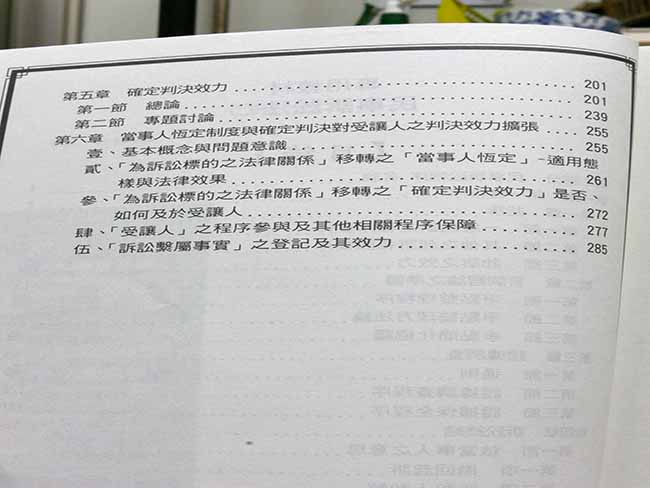 第五章 確定判決效力 201
第一節 總論 201
第二節 專題討論 239
第六章 當事人恆定制度與確定判決對受讓人之判決效力擴張 255
壹、基本概念與問題意識 255
貳、「為訴訟標的之法律關係」移轉之「當事人恆定」-適用態
樣與法律效果 261
參、「為訴訟標的之法律關係」移轉之「確定判決效力」是否、
如何及於受讓人 272
肆、「受讓人」之程序參與及其他相關程序保障 277
伍、「訴訟繫屬事實」之登記及其效力 285